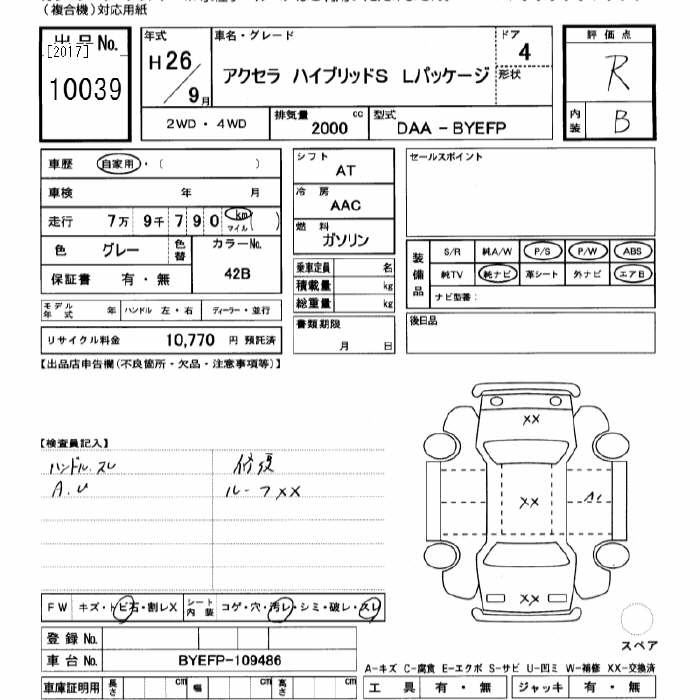 （複合機）対応用紙
出品No.
[2017]
10039
年式
H26／9月
車名・グレード
アクセラ ハイブリッドS Lパッケージ
ドア
4
形状
2WD・4WD
排気量 2000 cc
型式 DAA-BYEFP
評価点
R
内装 B
車歴 自家用・( )
車検 年 月
走行 7万 9千 7 9 0 km マイル ( )
色 グレー 色替 カラーNo.
保証書 有・無 42B
モデル年式 年 ハンドル 左・右 ディーラー・並行
リサイクル料金 10,770 円 預託済
シフト
AT
冷房
AAC
燃料
ガソリン
乗車定員 名
積載量 kg
総重量 kg
書類期限
月 日
セールスポイント
装備品
S/R 純A/W P/S P/W ABS
純TV 純ナビ 革シート 外ナビ エアB
ナビ型番：
後日品
【出品店申告欄(不良箇所・欠品・注意事項等)】
【検査員記入】
ハンドル.スレ
A.U
修復
ルーフXX
XX
XX
A1
XX
FW キズ・トビ石・割レX シート内装 コゲ・穴・汚レ・シミ・破レ・スレ
登録No.
車台No. BYEFP-109486
車庫証明用 長さ cm 幅 cm 高さ cm
スペア
A-キズ C-腐食 E-エクボ S-サビ U-凹ミ W-補修 XX-交換済
工具 有・無 ジャッキ 有・無